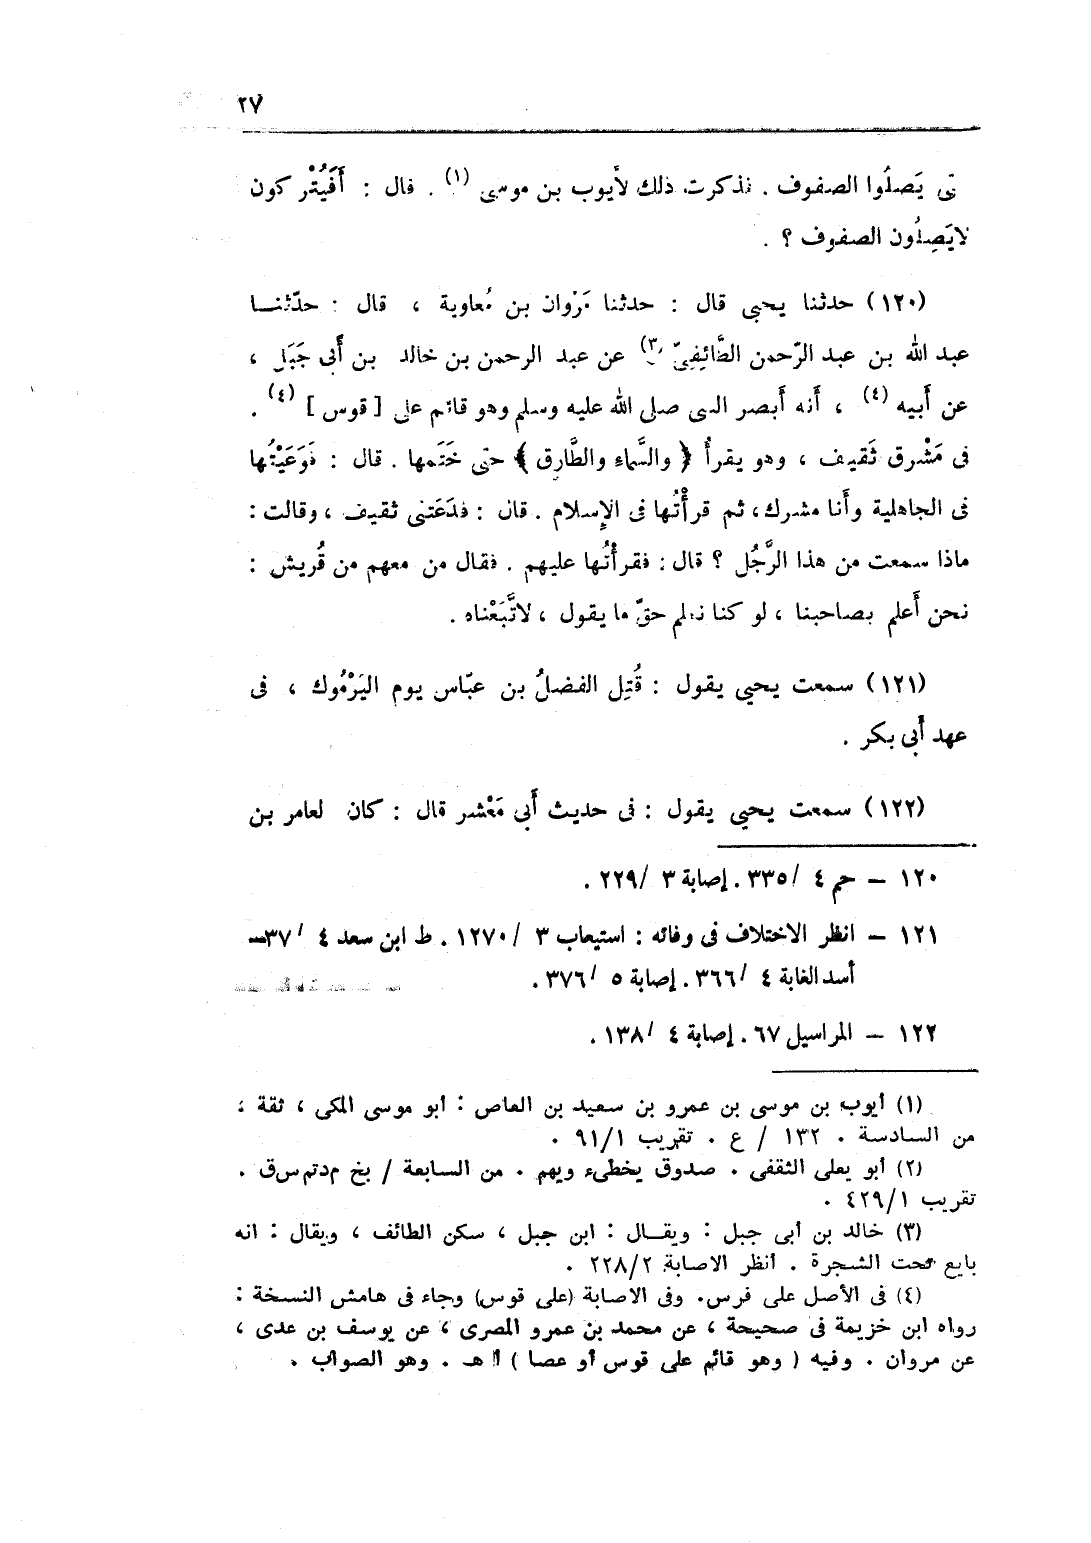 ٢٧
تى يَصلُوا الصفوف . نذكرت ذلك لأيوب بن موسى (١) . قال : أَفَيُتْركون
لايَصِلُون الصفوف ؟ .
(١٢٠) حدثنا يحيى قال : حدثنا مَرْوان بن مُعاوية ، قال : حدّثنــا
عبد الله بن عبد الرّحمن الطَّائِفِيّ (٣) عن عبد الرحمن بن خالد بن أَبى جَبَل ،
عن أَبيه (٤) ، أَنه أَبصر النبى صلى الله عليه وسلم وهو قائم على [ قوس ] (٤) .
فى مَشْرق ثَقيف ، وهو يقرأُ ﴿ والسَّماء والطَّارق ﴾ حتى خَتَمها . قال : فَوَعَيْتُها
فى الجاهلية وأَنا مشرك، ثم قرأْتُها فى الإِسلام . قال : فدَعَتنى ثقيف ، وقالت :
ماذا سمعت من هذا الرَّجُل ؟ قال : فقرأْتُها عليهم . فقال من معهم من قُريش :
نحن أَعلم بصاحبنا ، لو كنا نعلم حقّ ما يقول ، لاتَّبَعْناه .
(١٢١) سمعت يحيى يقول : قُتِل الفضلُ بن عبّاس يوم اليَرْمُوك ، فى
عهد أَبى بكر .
(١٢٢) سمعت يحيى يقول : فى حديث أَبى مَعْشر قال : كان لعامر بن
١٢٠ – حم ٤ /٣٣٥. إصابة ٣ /٢٢٩.
١٢١ – انظر الاختلاف فى وفائه : استيعاب ٣ /١٢٧٠. ط ابن سعد ٤ /٣٧–
أسد الغابة ٤ /٣٦٦. إصابة ٥ /٣٧٦.
١٢٢ – المراسيل ٦٧. إصابة ٤ /١٣٨.
(١) أيوب بن موسى بن عمرو بن سعيد بن العاص : أبو موسى المكى ، ثقة ،
من السادسة . ١٣٢ / ع . تقريب ٩١/١ .
(٢) أبو يعلى الثقفى . صدوق يخطىء ويهم . من السابعة / بخ م د تم س ق .
تقريب ٤٢٩/١ .
(٣) خالد بن أبى جبل : ويقــال : ابن جبل ، سكن الطائف ، ويقال : انه
بايع تحت الشجرة . أنظر الاصابة ٢٢٨/٢ .
(٤) فى الأصل على فرس. وفى الاصابة (على قوس) وجاء فى هامش النسخة :
رواه ابن خزيمة فى صحيحة ، عن محمد بن عمرو المصرى ، عن يوسف بن عدى ،
عن مروان . وفيه ( وهو قائم على قوس أو عصا ) أ هـ . وهو الصواب .